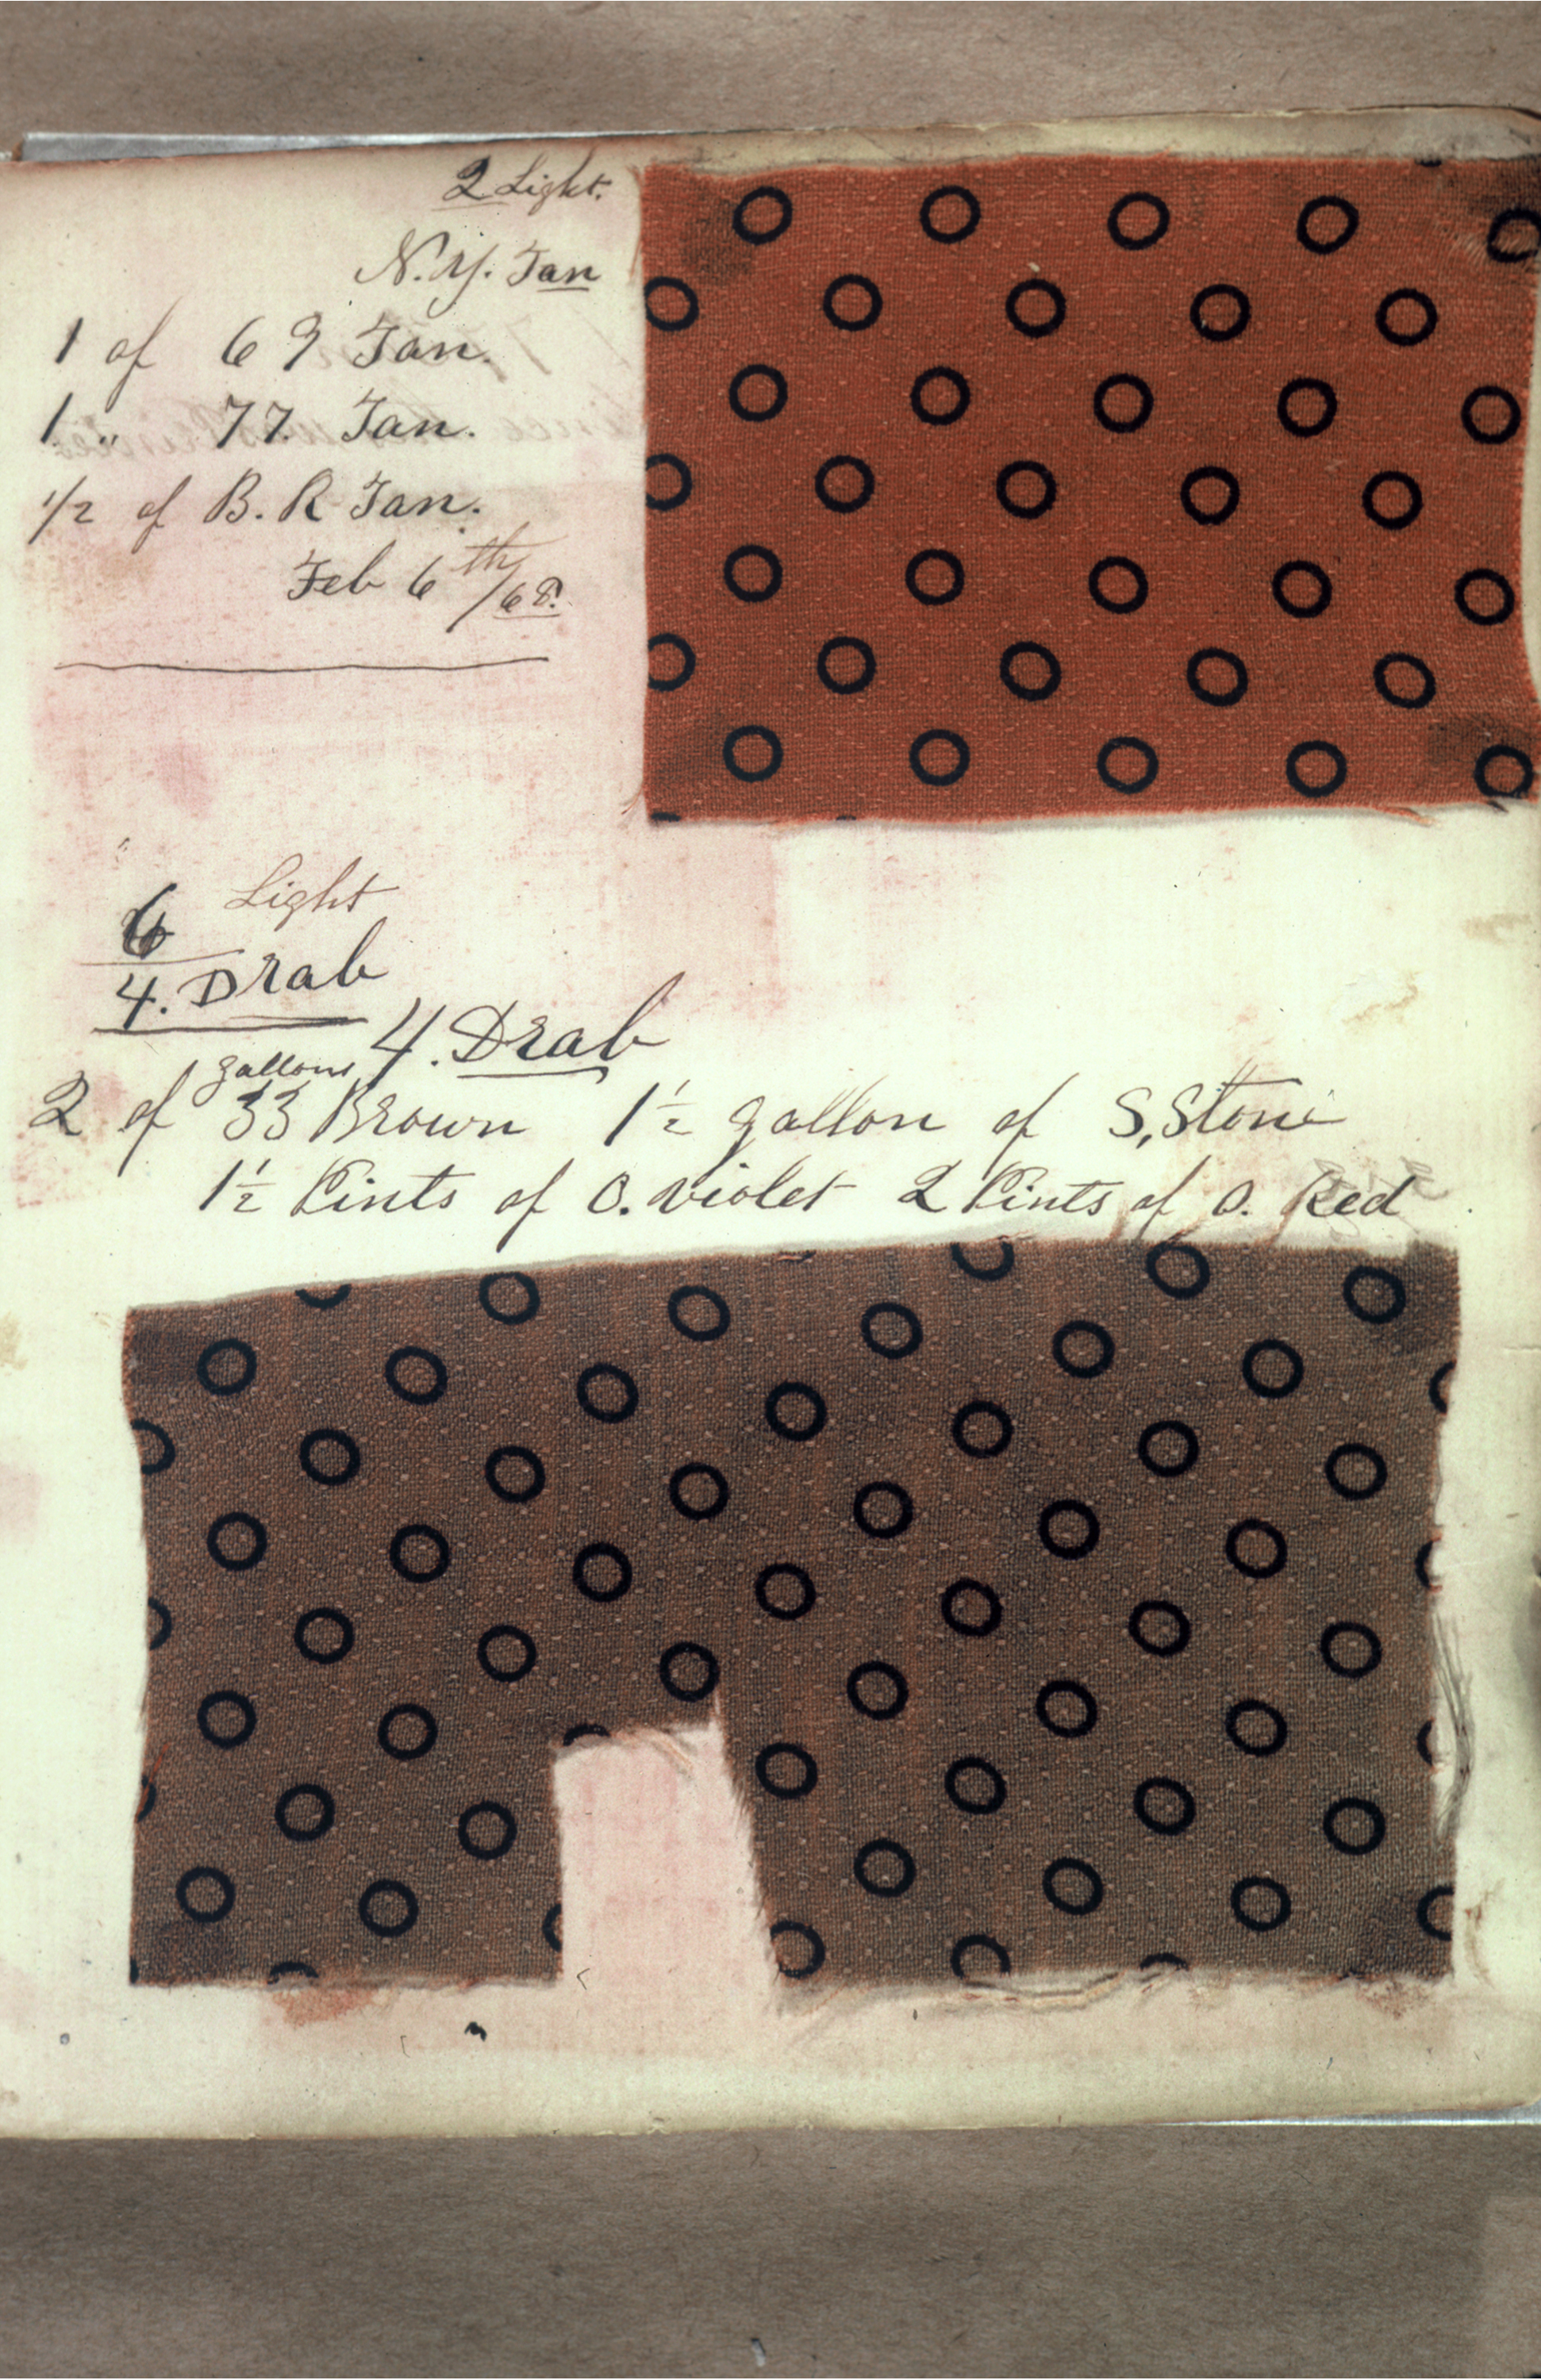 2 Light.
N.Y. Tan
1 of 69 Tan.
1 " 77. Tan.
1/2 of B. R Tan.
Feb 6th/68.
6 Light
4. Drab
4. Drab
gallons
2 of 33 Brown 1½ gallon of S. Stone
1½ Pints of O. violet 2 Pints of O. Red